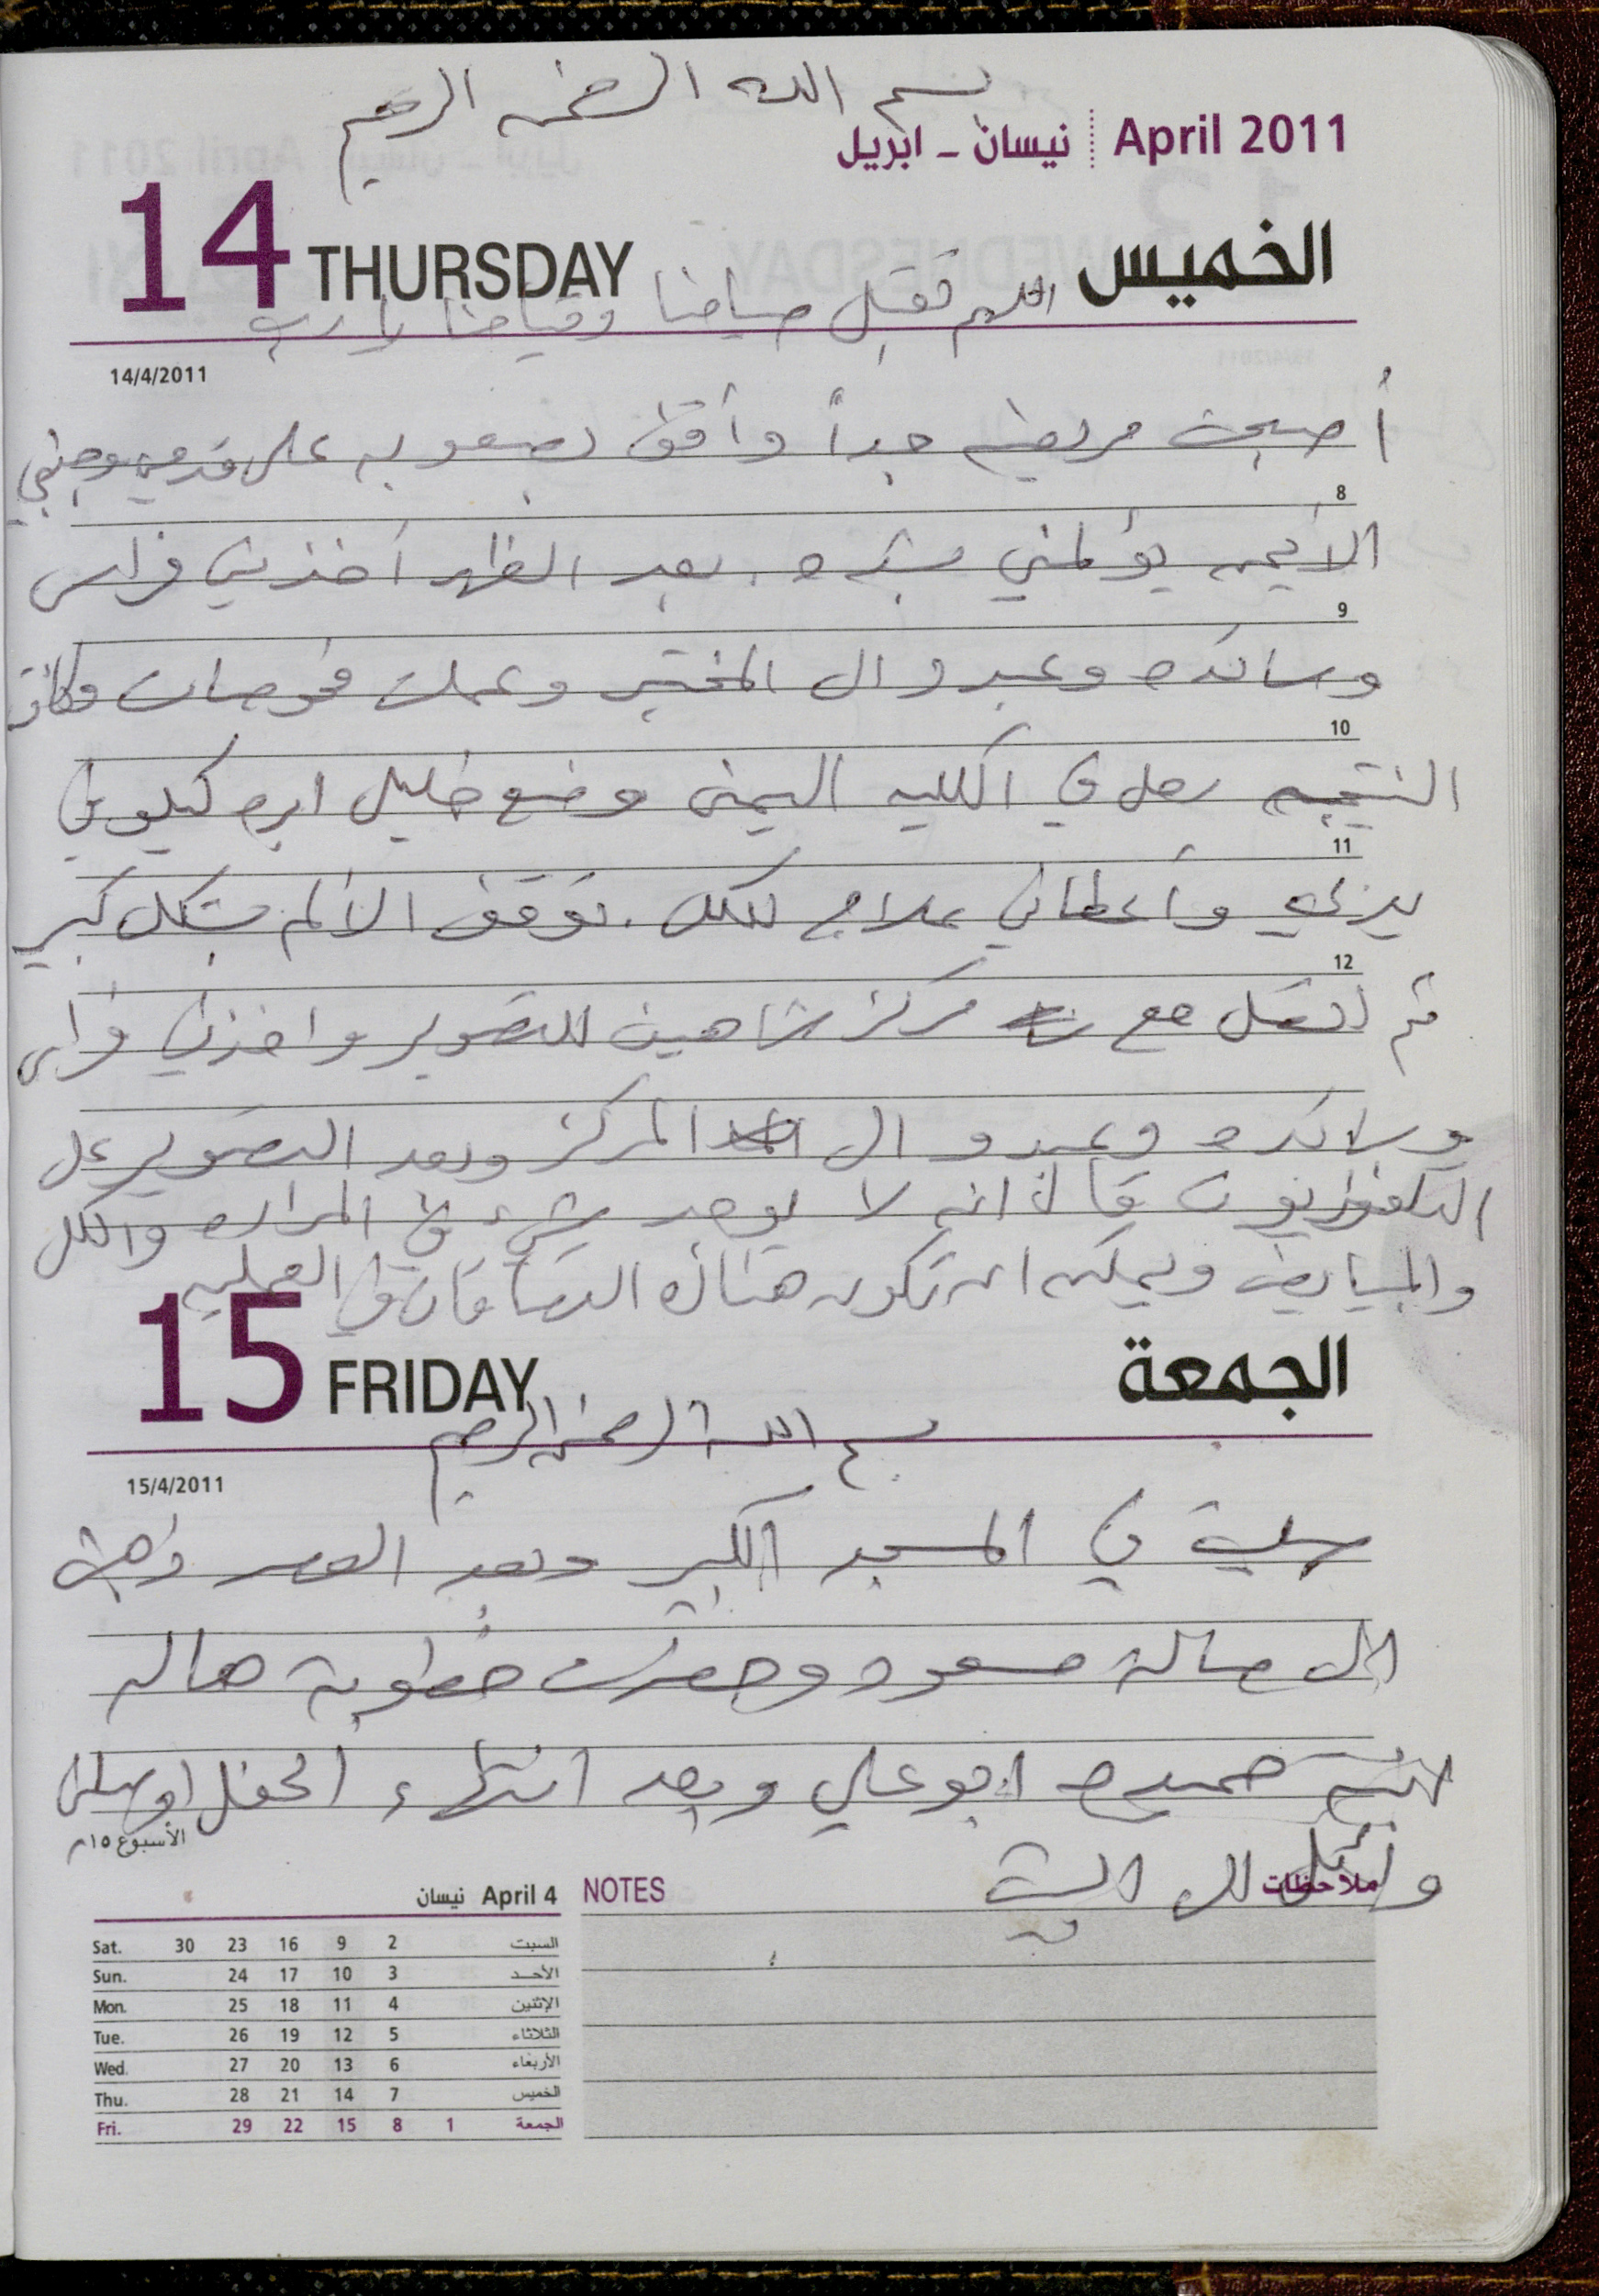 بسم الله الرحمن الرحيم
نيسان - ابريل April 2011
14 THURSDAY الخميس
اللهم تقبل صيامنا وقيامنا يا رب
14/4/2011
أصبحت مريضه جداً وأقف بصعوبه على قدمي وجنبي
8
الأيمن يؤلمني بشده. بعد الظهر أخذني فراس
9
وسائده وعبدو الى المختبر وعملت فحوصات وكانت
10
النتيجه رمل في الكليه اليمنى وضع خليل ابره كيلو في
11
يدي وأعطاني علاج للكلى. توقف الألم بشكل كبير
12
ثم اتصل مع مركز شاهين للتصوير واخذني فراس
وسائده وعبدو الى المركز وبعد التصوير على
التلفزيون قال انه لا يوجد شيء في المراره والكلى
والمبايض ويمكن ان تكون هناك التصاقات في العمليه
15 FRIDAY الجمعة
بسم الله الرحمن الرحيم
15/4/2011
صليت في المسجد الكبير وبعد العصر ذهبت
الى صالة مسعود وحضرت خطوبة هاله
حميده ابو علي وبعد انتهاء الحفل اوصلنا
وائل الى البيت
الأسبوع ١٥
ملاحظات NOTES
April 4 نيسان
Sat. 30 23 16 9 2 السبت
Sun. 24 17 10 3 الأحد
Mon. 25 18 11 4 الإثنين
Tue. 26 19 12 5 الثلاثاء
Wed. 27 20 13 6 الأربعاء
Thu. 28 21 14 7 الخميس
Fri. 29 22 15 8 1 الجمعة